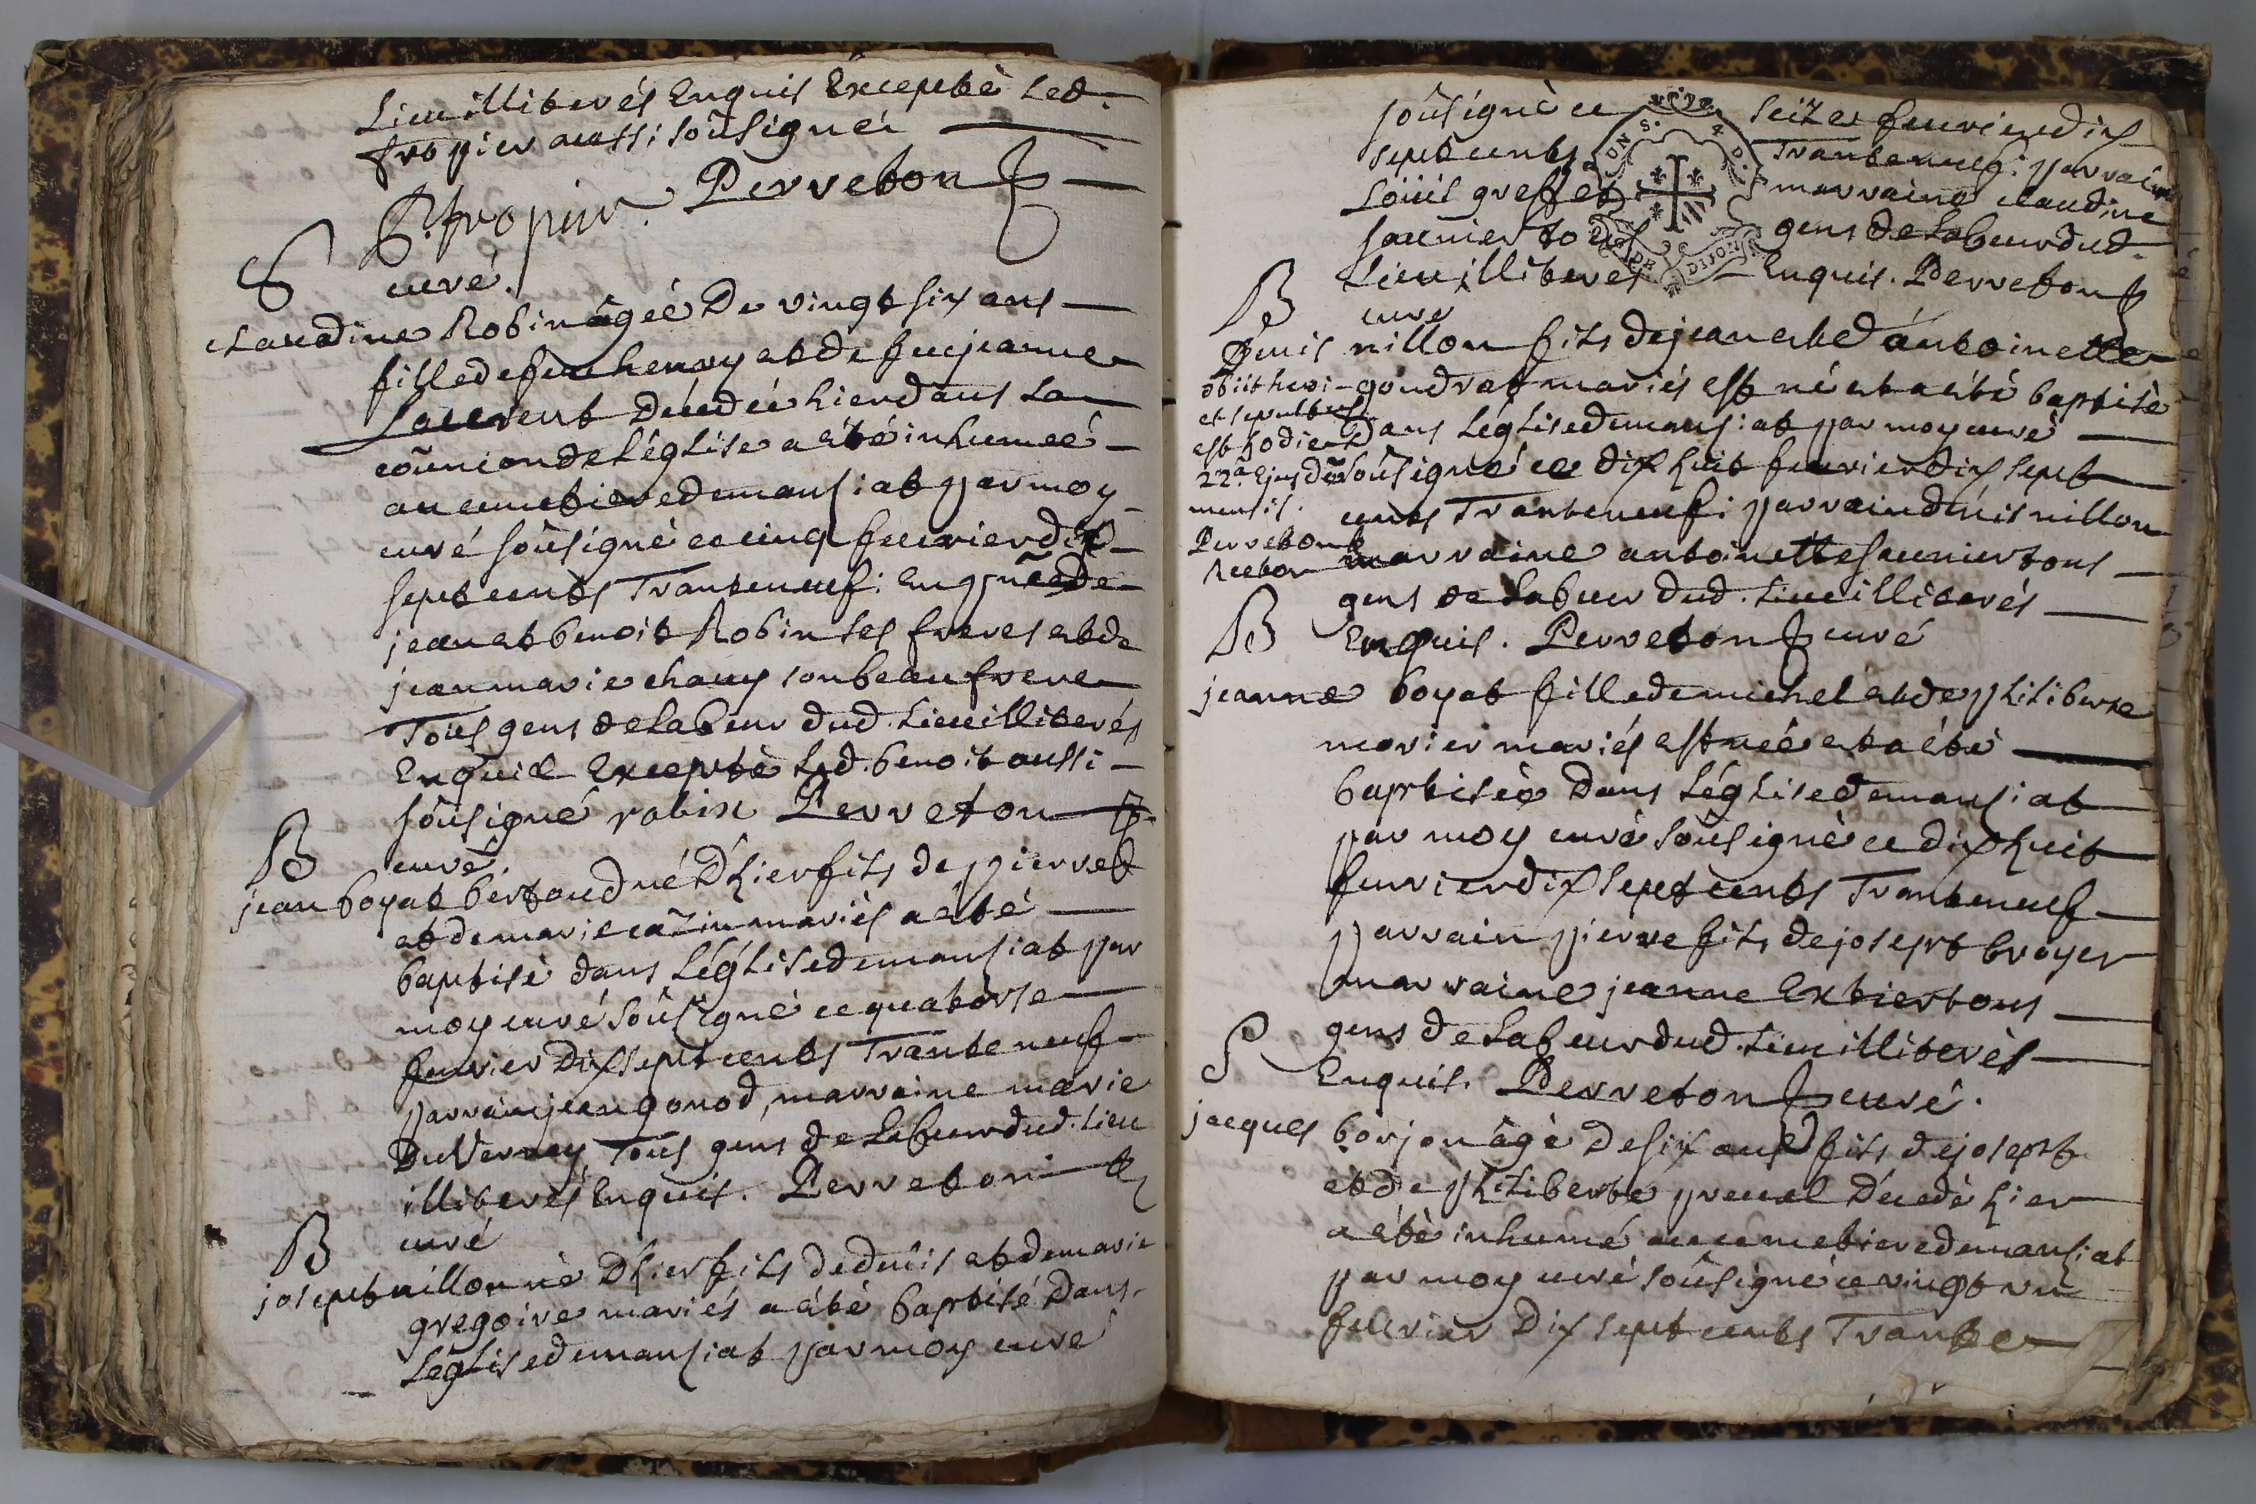 Lieu illiterés Enquis Excepté Led.
fropier aussi soûsigné
B. fropier. Perreton
curé.
S
claudine Robin âgée De vingt six ans
fille de feu henry et de feu jeanne
Laurent Décédée hier dans La
coũnion de L'église a été inhumée
au cimetiere de mansiat par moy
curé soûsigné ce cinq feuvrier dix
sept cents Trante neuf: En pñce de
jean et benoit Robin ses freres et de
jean marie chaux son beau frere
Tous gens de Labeur dud. Lieu illiterés
Enquis Excepté Led. benoit aussi
soûsigné robin Perreton
curé.
B
jean boyat bertoud né D'hier fils de pierre
et de marie cazin mariés a été
baptisé dans L'église de mansiat par
moy curé soûsigné ce quatorse
feuvrier Dix sept cents Trante neuf
parrain jean gonod, marraine marie
Duverney Tous gens de Labeur dud. Lieu
illiterés Enquis. Perreton
curé
B
josept nillon né D'hier fils de denis et de marie
gregoire mariés a été baptisé Dans
L'église de mansiat par moy curé
soûsigné ce seize feuvrier dix
sept cents Trante neuf: parrain
Loüis greffet marraine claudine
saunier tous gens de Labeur dud.
Lieu illiterés Enquis. Perreton
curé
DE DIJON
B
Denis nillon fils de jean et d'antoinette
goudrat mariés est né et a été baptisé
dans L'église de mansiat par moy curé
soûsigné ce dix huit feuvrier dix sept
cents Trante neuf: parrain denis nillon
marraine antoinette saunier tous
gens de Labeur dud. Lieu illiterés
Enquis. Perreton curé
obiit heri
et sepultus
est hodie
22ª Ejusdẽ
mensis.
Perreton
Rector
B
jeanne boyat fille de michel et de philiberte
morier mariés est née et a été
baptisée Dans L'église de mansiat
par moy curé soûsigné ce dix huit
feuvrier dix sept cents Trante neuf
parrain pierre fils de josept broyer
marraine jeanne Extier tous
gens de Labeur dud. Lieu illiterés
Enquis. Perreton curé.
S
jacques borjon âgé de six ans fils de josept
et de philiberte preuel Décédé hier
a été inhumé au cimetiere de mansiat
par moy curé soûsigné ce vingt un
feuvrier Dix sept cents Trante